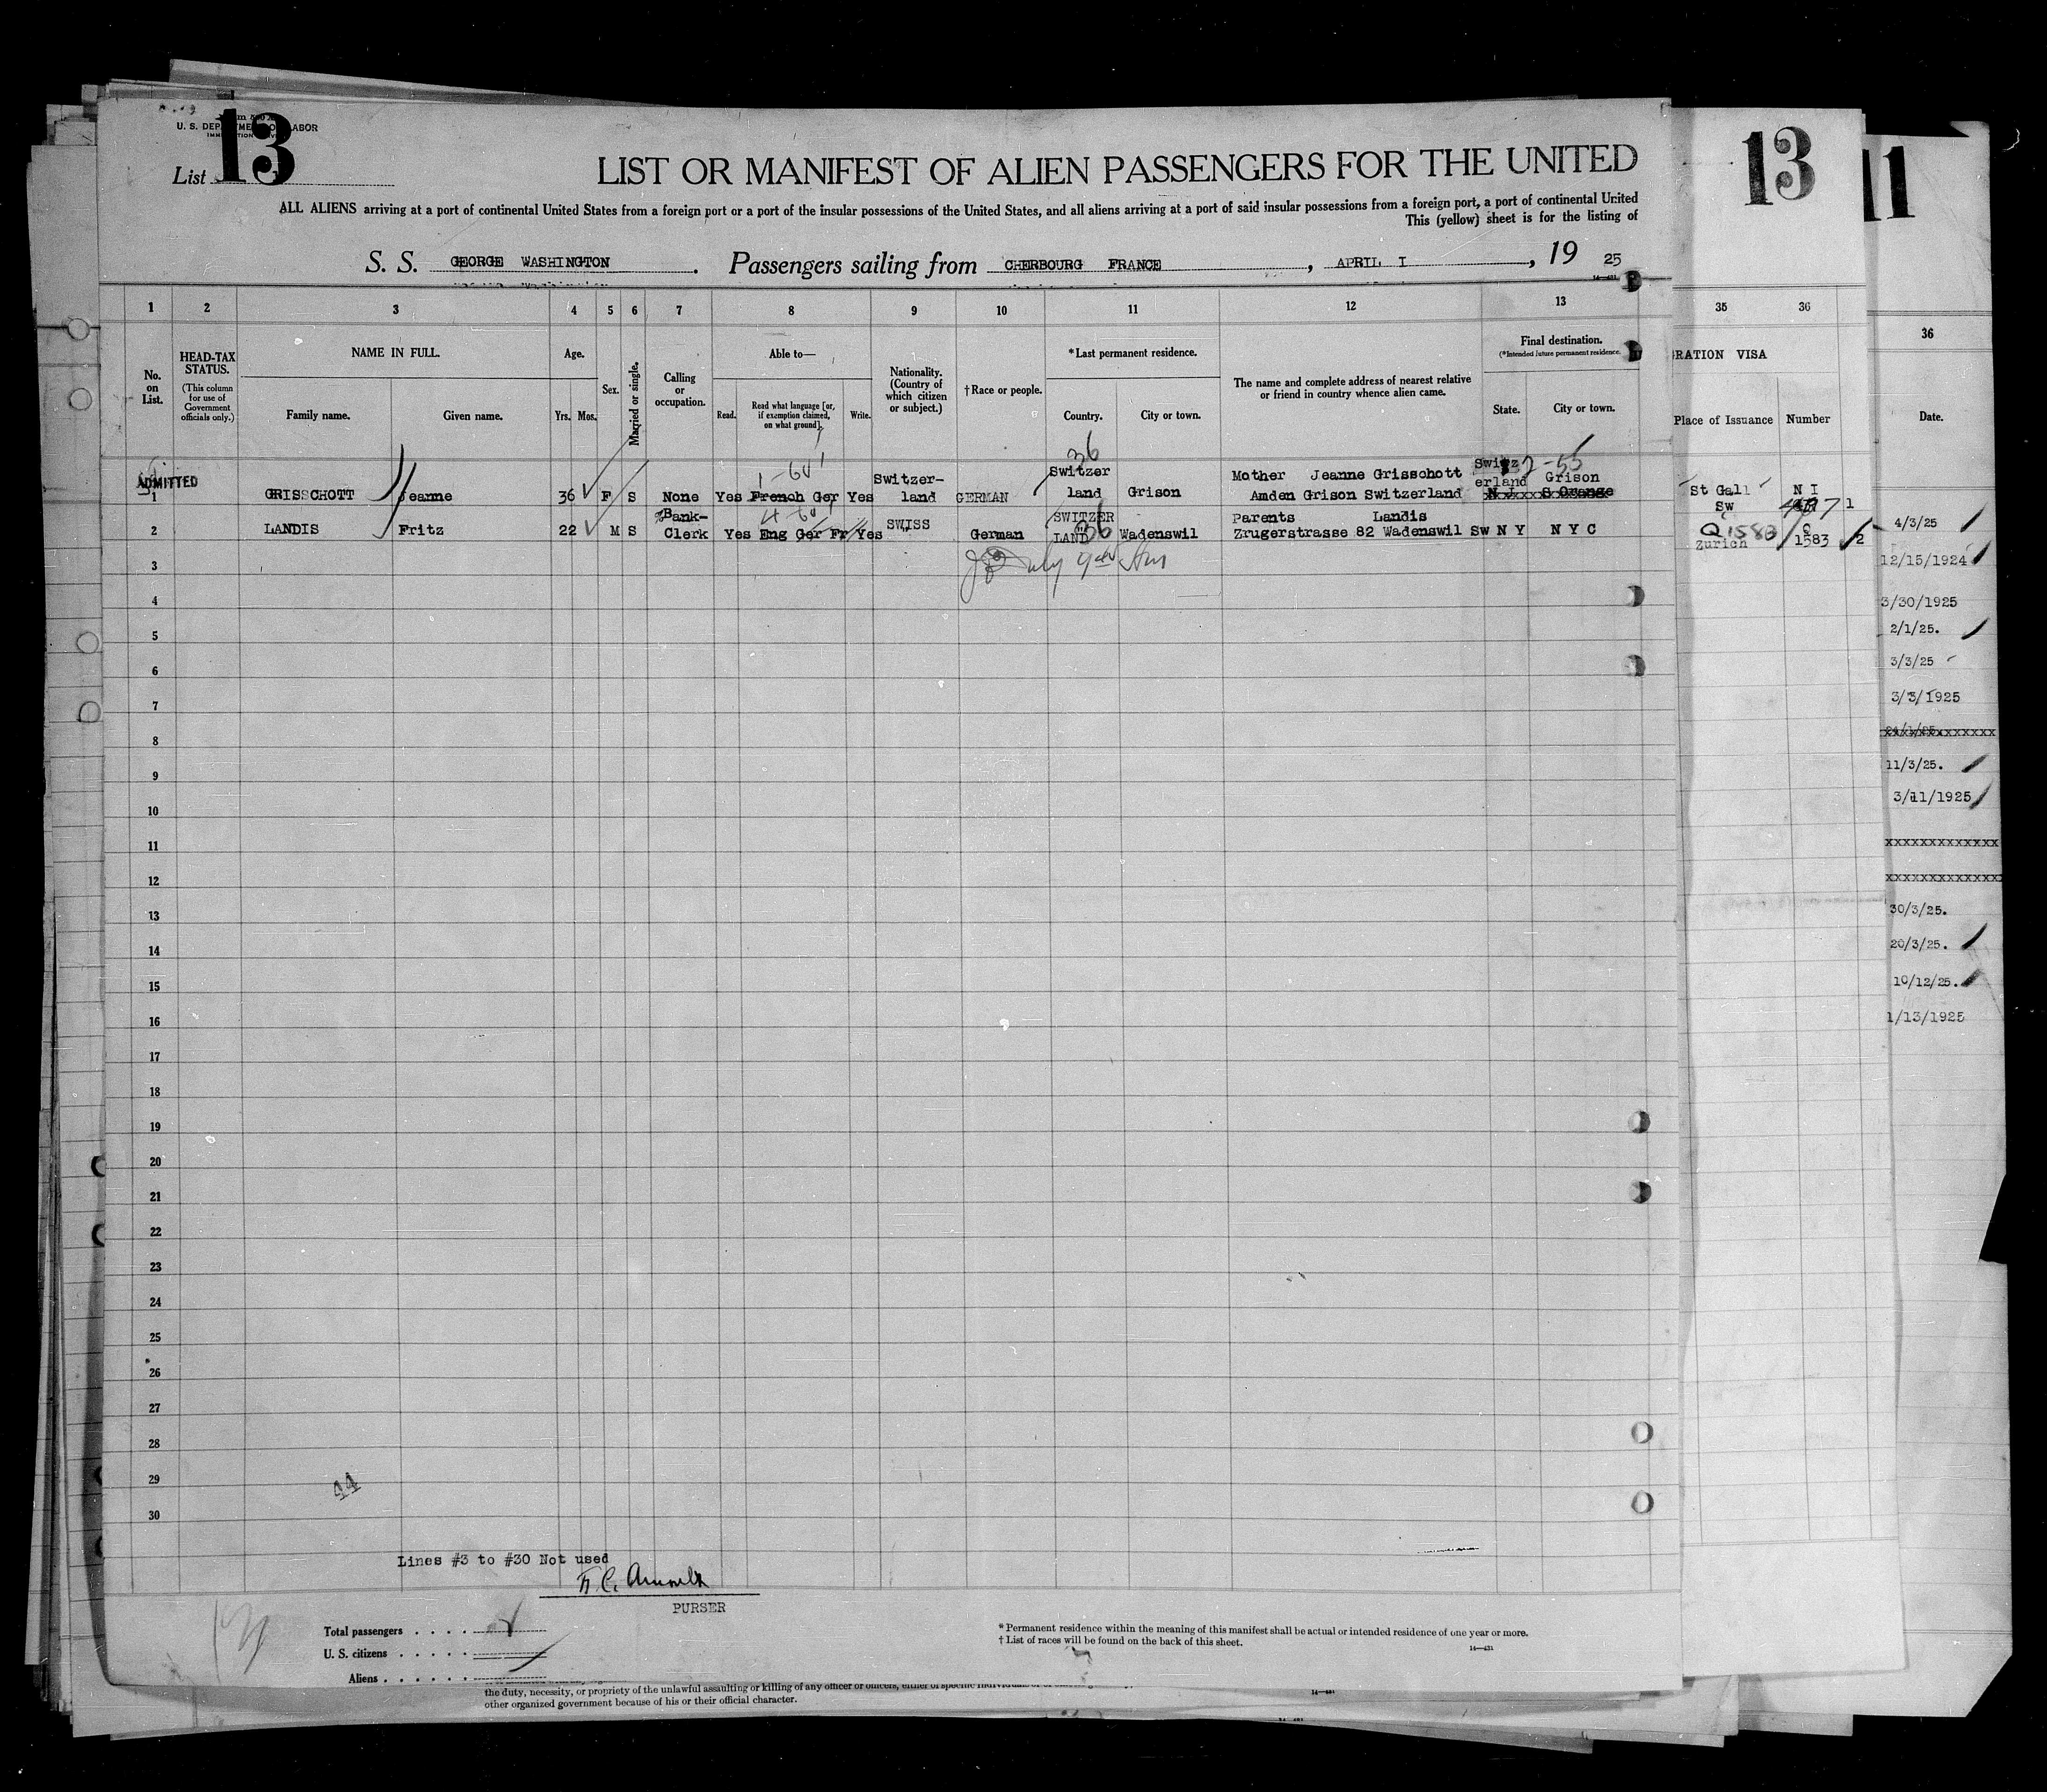 13
U. S. DEPARTMENT OF LABOR
List
LIST OR MANIFEST OF ALIEN PASSENGERS FOR THE UNITED
ALL ALIENS arriving at a port of continental United States from a foreign port or a port of the insular possessions of the United States, and all aliens arriving at a port of said insular possessions from a foreign port, a port of continental United
This (yellow) sheet is for the listing of
S. S. GEORGE WASHINGTON . Passengers sailing from CHERBOURG FRANCE , APRIL I , 19 25
14—431
1 2 3 4 5 6 7 8 9 10 11 12 13
No. on List.
HEAD-TAX STATUS.
(This column for use of Government officials only.)
NAME IN FULL.
Family name. Given name.
Age.
Yrs. Mos.
Sex.
Married or single.
Calling or occupation.
Able to—
Read. Read what language [or, if exemption claimed, on what ground]. Write.
Nationality. (Country of which citizen or subject.)
†Race or people.
*Last permanent residence.
Country. City or town.
The name and complete address of nearest relative or friend in country whence alien came.
Final destination.
(*Intended future permanent residence.
State. City or town.
36
ADMITTED
Switzer- Switzer Mother Jeanne Grisschott Switz 2-55 Grison
1 GRISSCHOTT Jeanne 36 F S None Yes French Ger Yes land GERMAN land Grison Amden Grison Switzerland erland N J S Orange
Bank- SWISS SWITZER Parents Landis
2 LANDIS Fritz 22 M S Clerk Yes Eng Ger Fr Yes German LAND 36 Wadenswil Zrugerstrasse 82 Wadenswil Sw N Y N Y C
3
4
5
6
7
8
9
10
11
12
13
14
15
16
17
18
19
20
21
22
23
24
25
26
27
28
29
30
44
Lines #3 to #30 Not used
PURSER
Total passengers . . . .
U. S. citizens . . . . .
Aliens . . . . . .
* Permanent residence within the meaning of this manifest shall be actual or intended residence of one year or more.
† List of races will be found on the back of this sheet.
14—431
the duty, necessity, or propriety of the unlawful assaulting or killing of any officer or officers, either of specific individuals or of
other organized government because of his or their official character.
13
35 36
GRATION VISA
Place of Issuance Number
St Gall N I
Sw 1
Q 1583
Zurich 1583 2
11
36
Date.
4/3/25
12/15/1924
3/30/1925
2/1/25.
3/3/25
3/3/1925
xxxxxxxxxxxxx
11/3/25.
3/11/1925
xxxxxxxxxxxxx
xxxxxxxxxxxxx
30/3/25.
20/3/25.
10/12/25.
1/13/1925